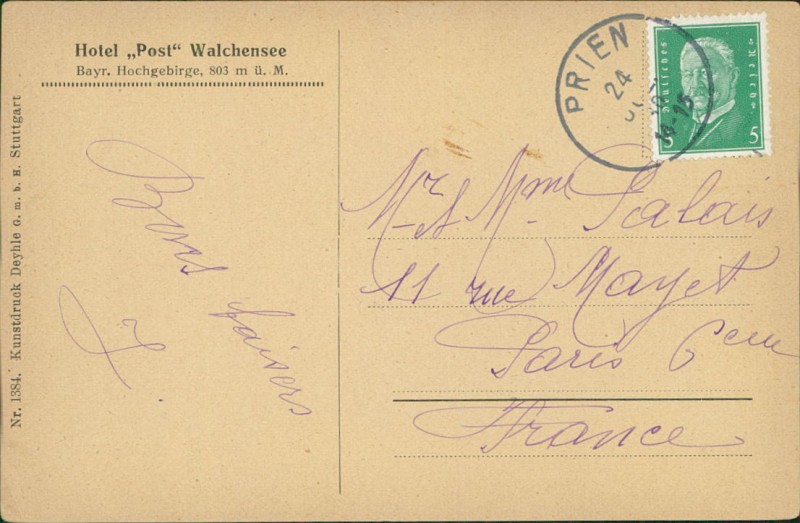 Hotel „Post“ Walchensee
Bayr. Hochgebirge, 803 m ü. M.
Nr. 1384. Kunstdruck Deyhle G. m. b. H. Stuttgart
Bons baisers
PRIEN
24
14-15
Deutsches
Reich
5 5
Mr & Mme Palais
11 rue Mayet
Paris 6eme
France